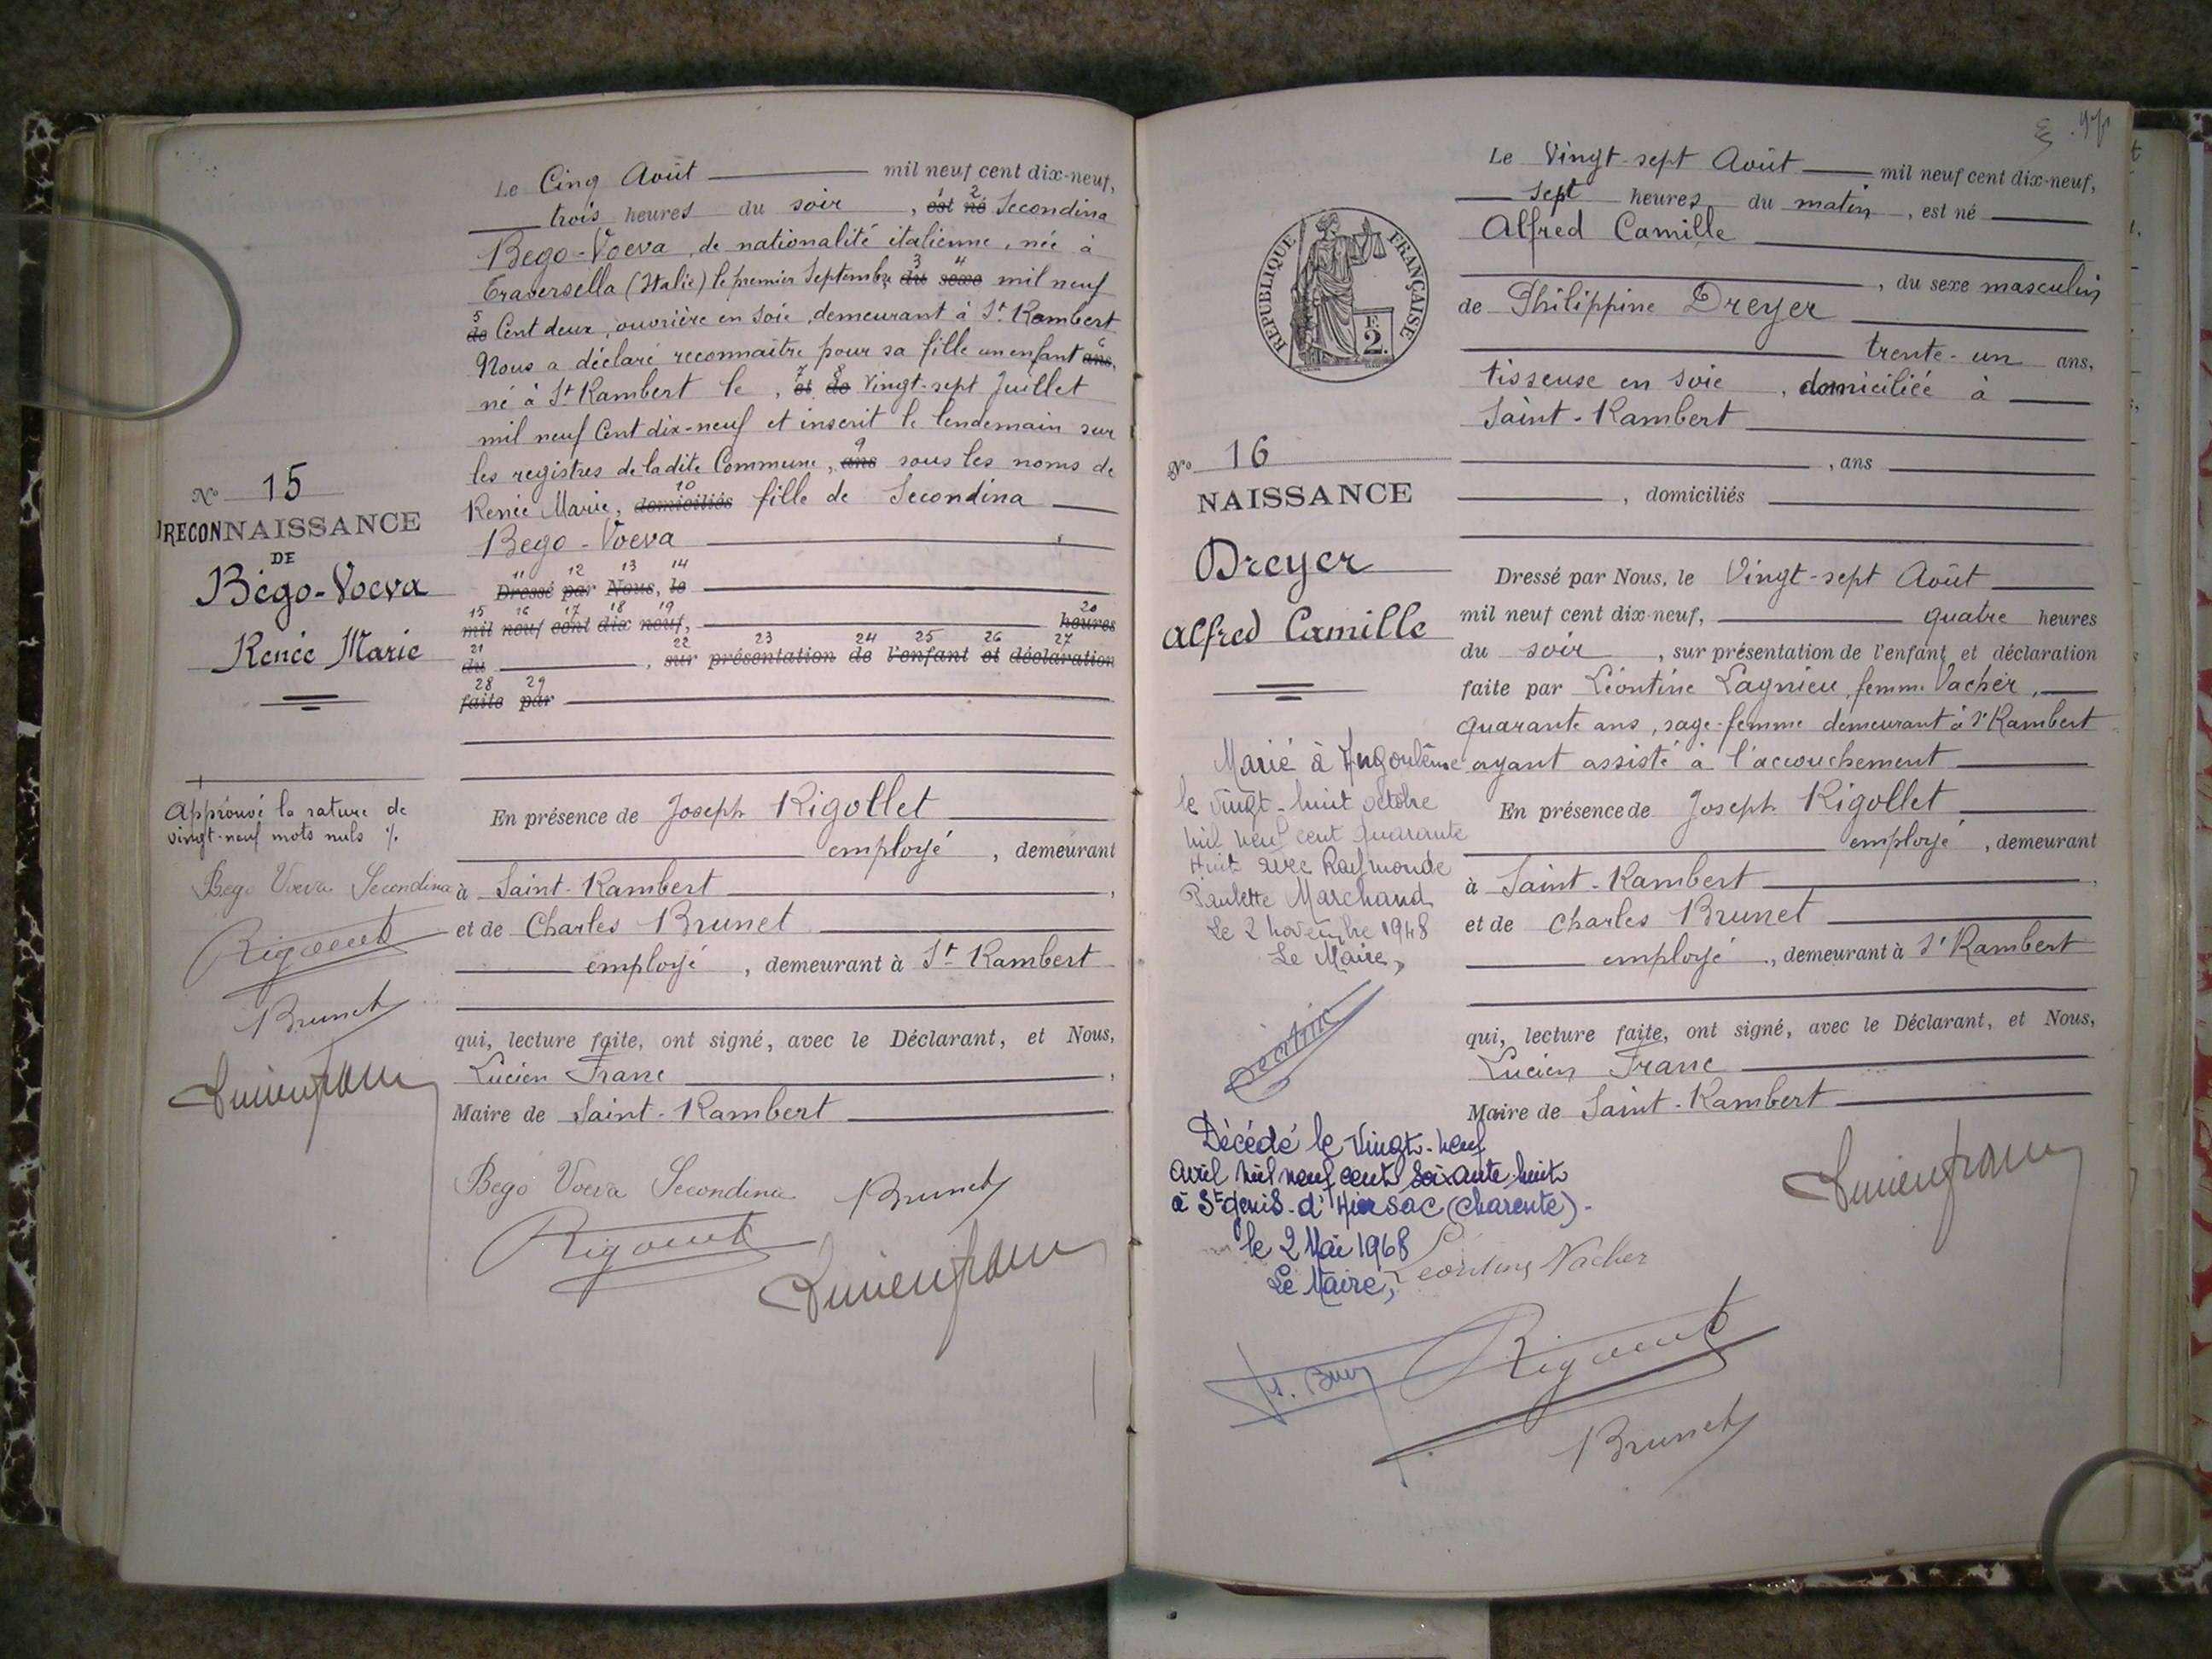 Le Cinq Août mil neuf cent dix-neuf,
trois heures du soir, est né Secondina
Bego-Voeva, de nationalité italienne, née à
Traversella (Italie) le premier Septembre du sexe mil neuf
de Cent deux, ouvrière en soie, demeurant à St Rambert
Nous a déclaré reconnaître pour sa fille un enfant ans,
né à St Rambert le, et de Vingt-sept Juillet
mil neuf Cent dix-neuf et inscrit le lendemain sur
les registres de la dite Commune, ans sous les noms de
Renée Marie, domiciliés fille de Secondina
Bego-Voeva
Dressé par Nous, le
mil neuf cent dix neuf, heures
du , sur présentation de l'enfant et déclaration
faite par
No 15
RECONNAISSANCE
DE
Bégo-Voeva
Renée Marie
Approuvé la rature de
vingt-neuf mots nuls
Bego Voeva Secondina
Brunet
En présence de Joseph Rigollet
employé, demeurant
à Saint-Rambert,
et de Charles Brunet
employé, demeurant à St Rambert
qui, lecture faite, ont signé, avec le Déclarant, et Nous,
Lucien Franc,
Maire de Saint-Rambert
Bego Voeva Secondina Brunet
Lucien Franc
E
Le Vingt-sept Août mil neuf cent dix-neuf,
sept heures du matin, est né
Alfred Camille
, du sexe masculin
de Philippine Dreyer
trente-un ans,
tisseuse en soie, domiciliée à
Saint-Rambert
, ans
, domiciliés
REPUBLIQUE FRANÇAISE
E.
2.
No 16
NAISSANCE
Dreyer
Alfred Camille
Dressé par Nous, le Vingt-sept Août
mil neuf cent dix-neuf, quatre heures
du soir, sur présentation de l'enfant et déclaration
faite par Léontine Lagnieu, femme Vacher,
quarante ans, sage-femme demeurant à St Rambert
ayant assisté à l'accouchement
En présence de Joseph Rigollet
employé, demeurant
à Saint-Rambert,
et de Charles Brunet
employé, demeurant à St Rambert
qui, lecture faite, ont signé, avec le Déclarant, et Nous,
Lucien Franc
Maire de Saint-Rambert
Marié à Angoulême
le vingt-huit octobre
mil neuf cent quarante
huit avec Raymonde
Paulette Marchand
Le 2 novembre 1948
Le Maire,
Décédé le vingt-neuf
avril mil neuf cent soixante huit
à St genis-d'Hiersac (Charente)-
le 2 Mai 1968
Le Maire,
Léontine Vacher
Lucien Franc
Brunet